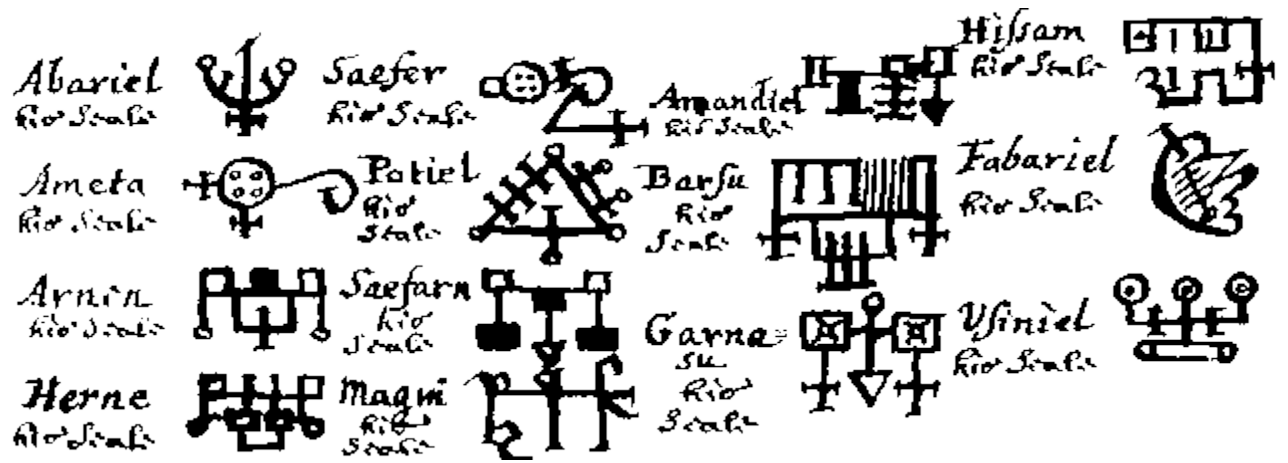 Abariel
his Seale
Ameta
his Seale
Arnen
his Seale
Herne
his Seale
Saefer
his Seale
Potiel
his
Seale
Saefarn
his
Seale
Magni
his
Seale
Amandiel
his Seale
Barſu
his
Seale
Garna=
su
his
Seale
Hiſsam
his Seale
Fabariel
his Seale
Vſiniel
his Seale